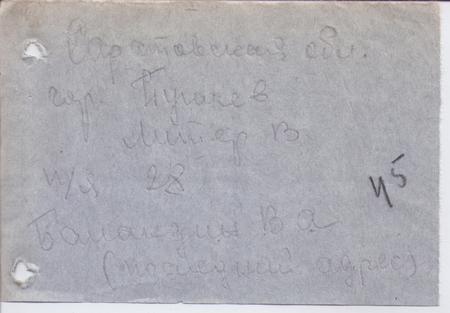 Саратовская обл.
гор. Пугачев
Литер В
п/я 28
№5
Баландин В А
(последний адрес)